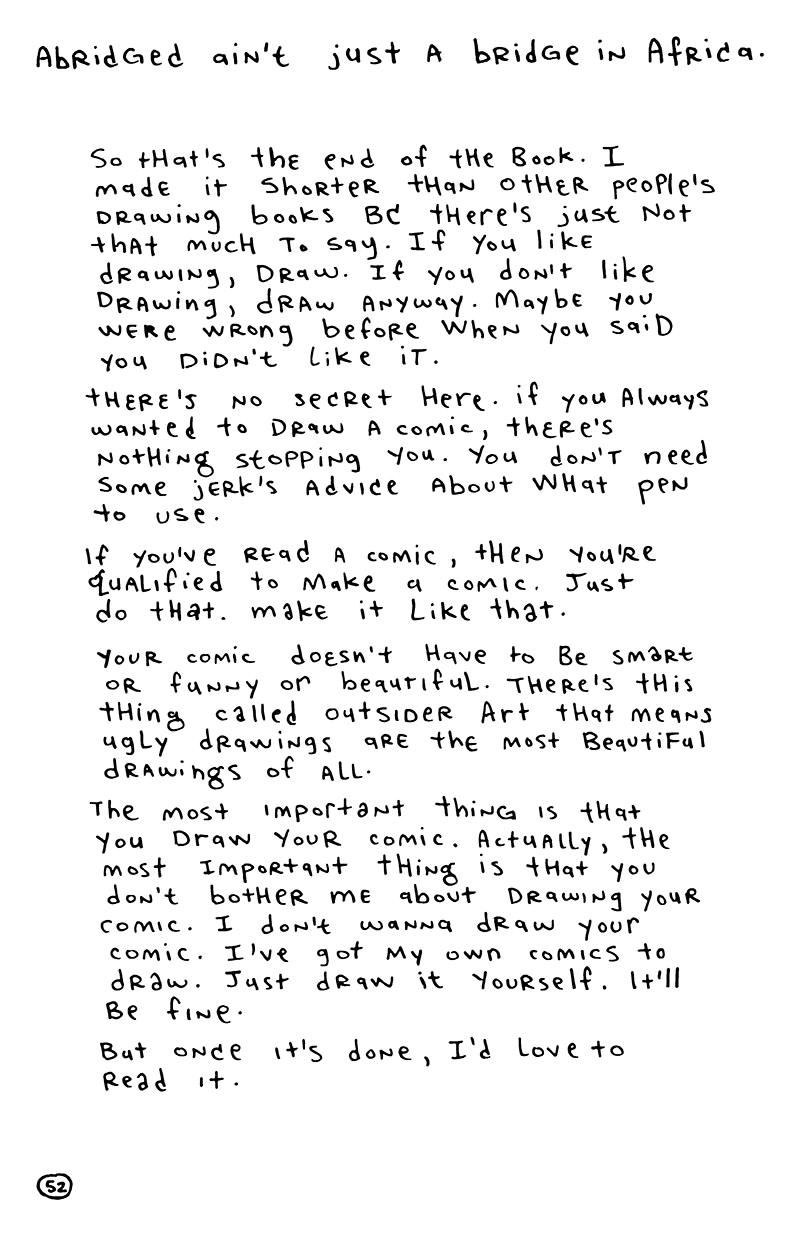 Abridged ain't just a bridge in Africa.
So that's the end of the book. I
made it shorter than other people's
drawing books BC there's just not
that much to say. If you like
drawing, draw. If you don't like
drawing, draw anyway. Maybe you
were wrong before when you said
you didn't like it.
There's no secret here. if you always
wanted to draw a comic, there's
nothing stopping you. You don't need
some jerk's advice about what pen
to use.
If you've read a comic, then you're
qualified to make a comic. Just
do that. make it like that.
Your comic doesn't have to be smart
or funny or beautiful. There's this
thing called outsider art that means
ugly drawings are the most beautiful
drawings of all.
The most important thing is that
you draw your comic. Actually, the
most important thing is that you
don't bother me about drawing your
comic. I don't wanna draw your
comic. I've got my own comics to
draw. Just draw it yourself. It'll
be fine.
But once it's done, I'd love to
read it.
52